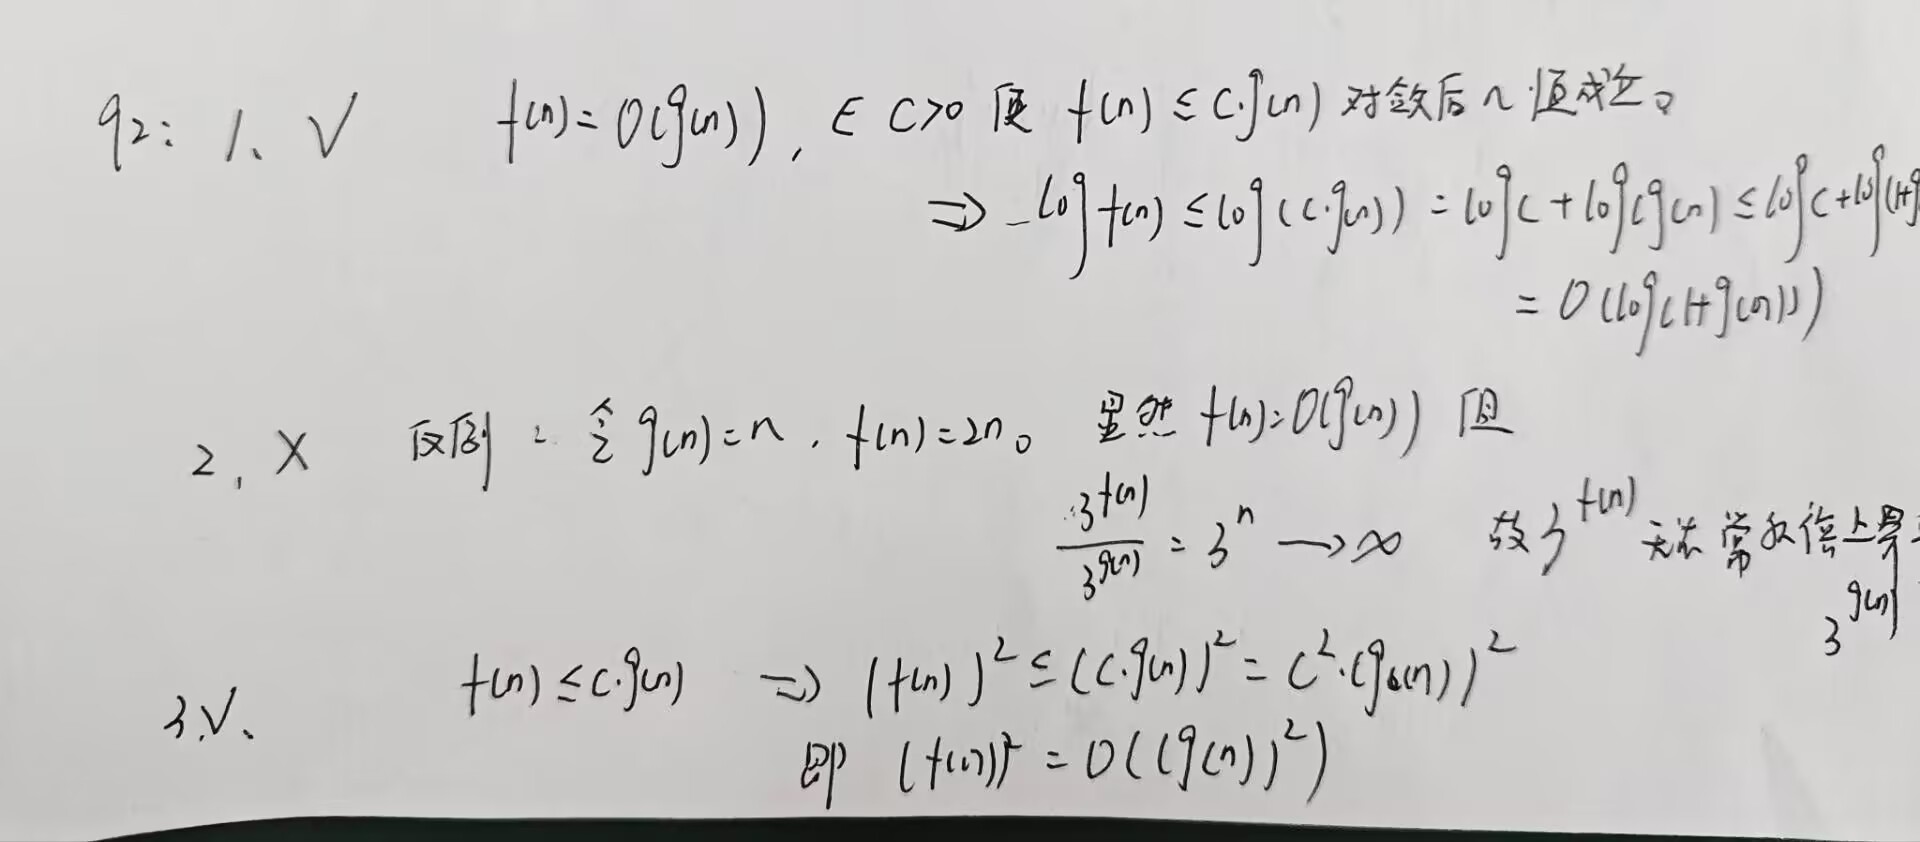 q2: 1、√ f(n)=O(g(n)), ∈ C>0 使 f(n) ≤ C·g(n) 对敛后 n 恒成立。
⇒ log f(n) ≤ log(c·g(n)) = log c + log(g(n) ≤ log c + log(1+g
= O(log(1+g(n)))
2, × 反例: 令 g(n)=n, f(n)=2n。 显然 f(n)=O(g(n)) 但
3^f(n) / 3^g(n) = 3^n → ∞ 故 3^f(n) 无法常数倍上界
3^g(n)
3.√、 f(n) ≤ c·g(n) ⇒ (f(n))^2 ≤ (c·g(n))^2 = C^2·(g(n))^2
即 (f(n))^2 = O((g(n))^2)